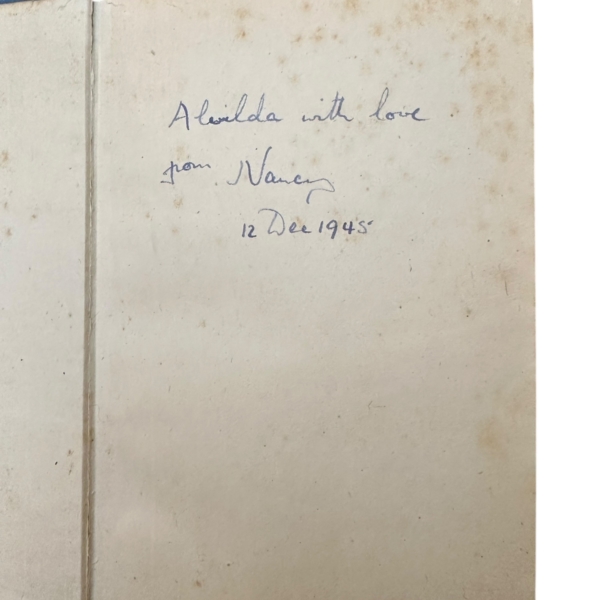 Alvilda with love
from Nancy
12 Dec 1945